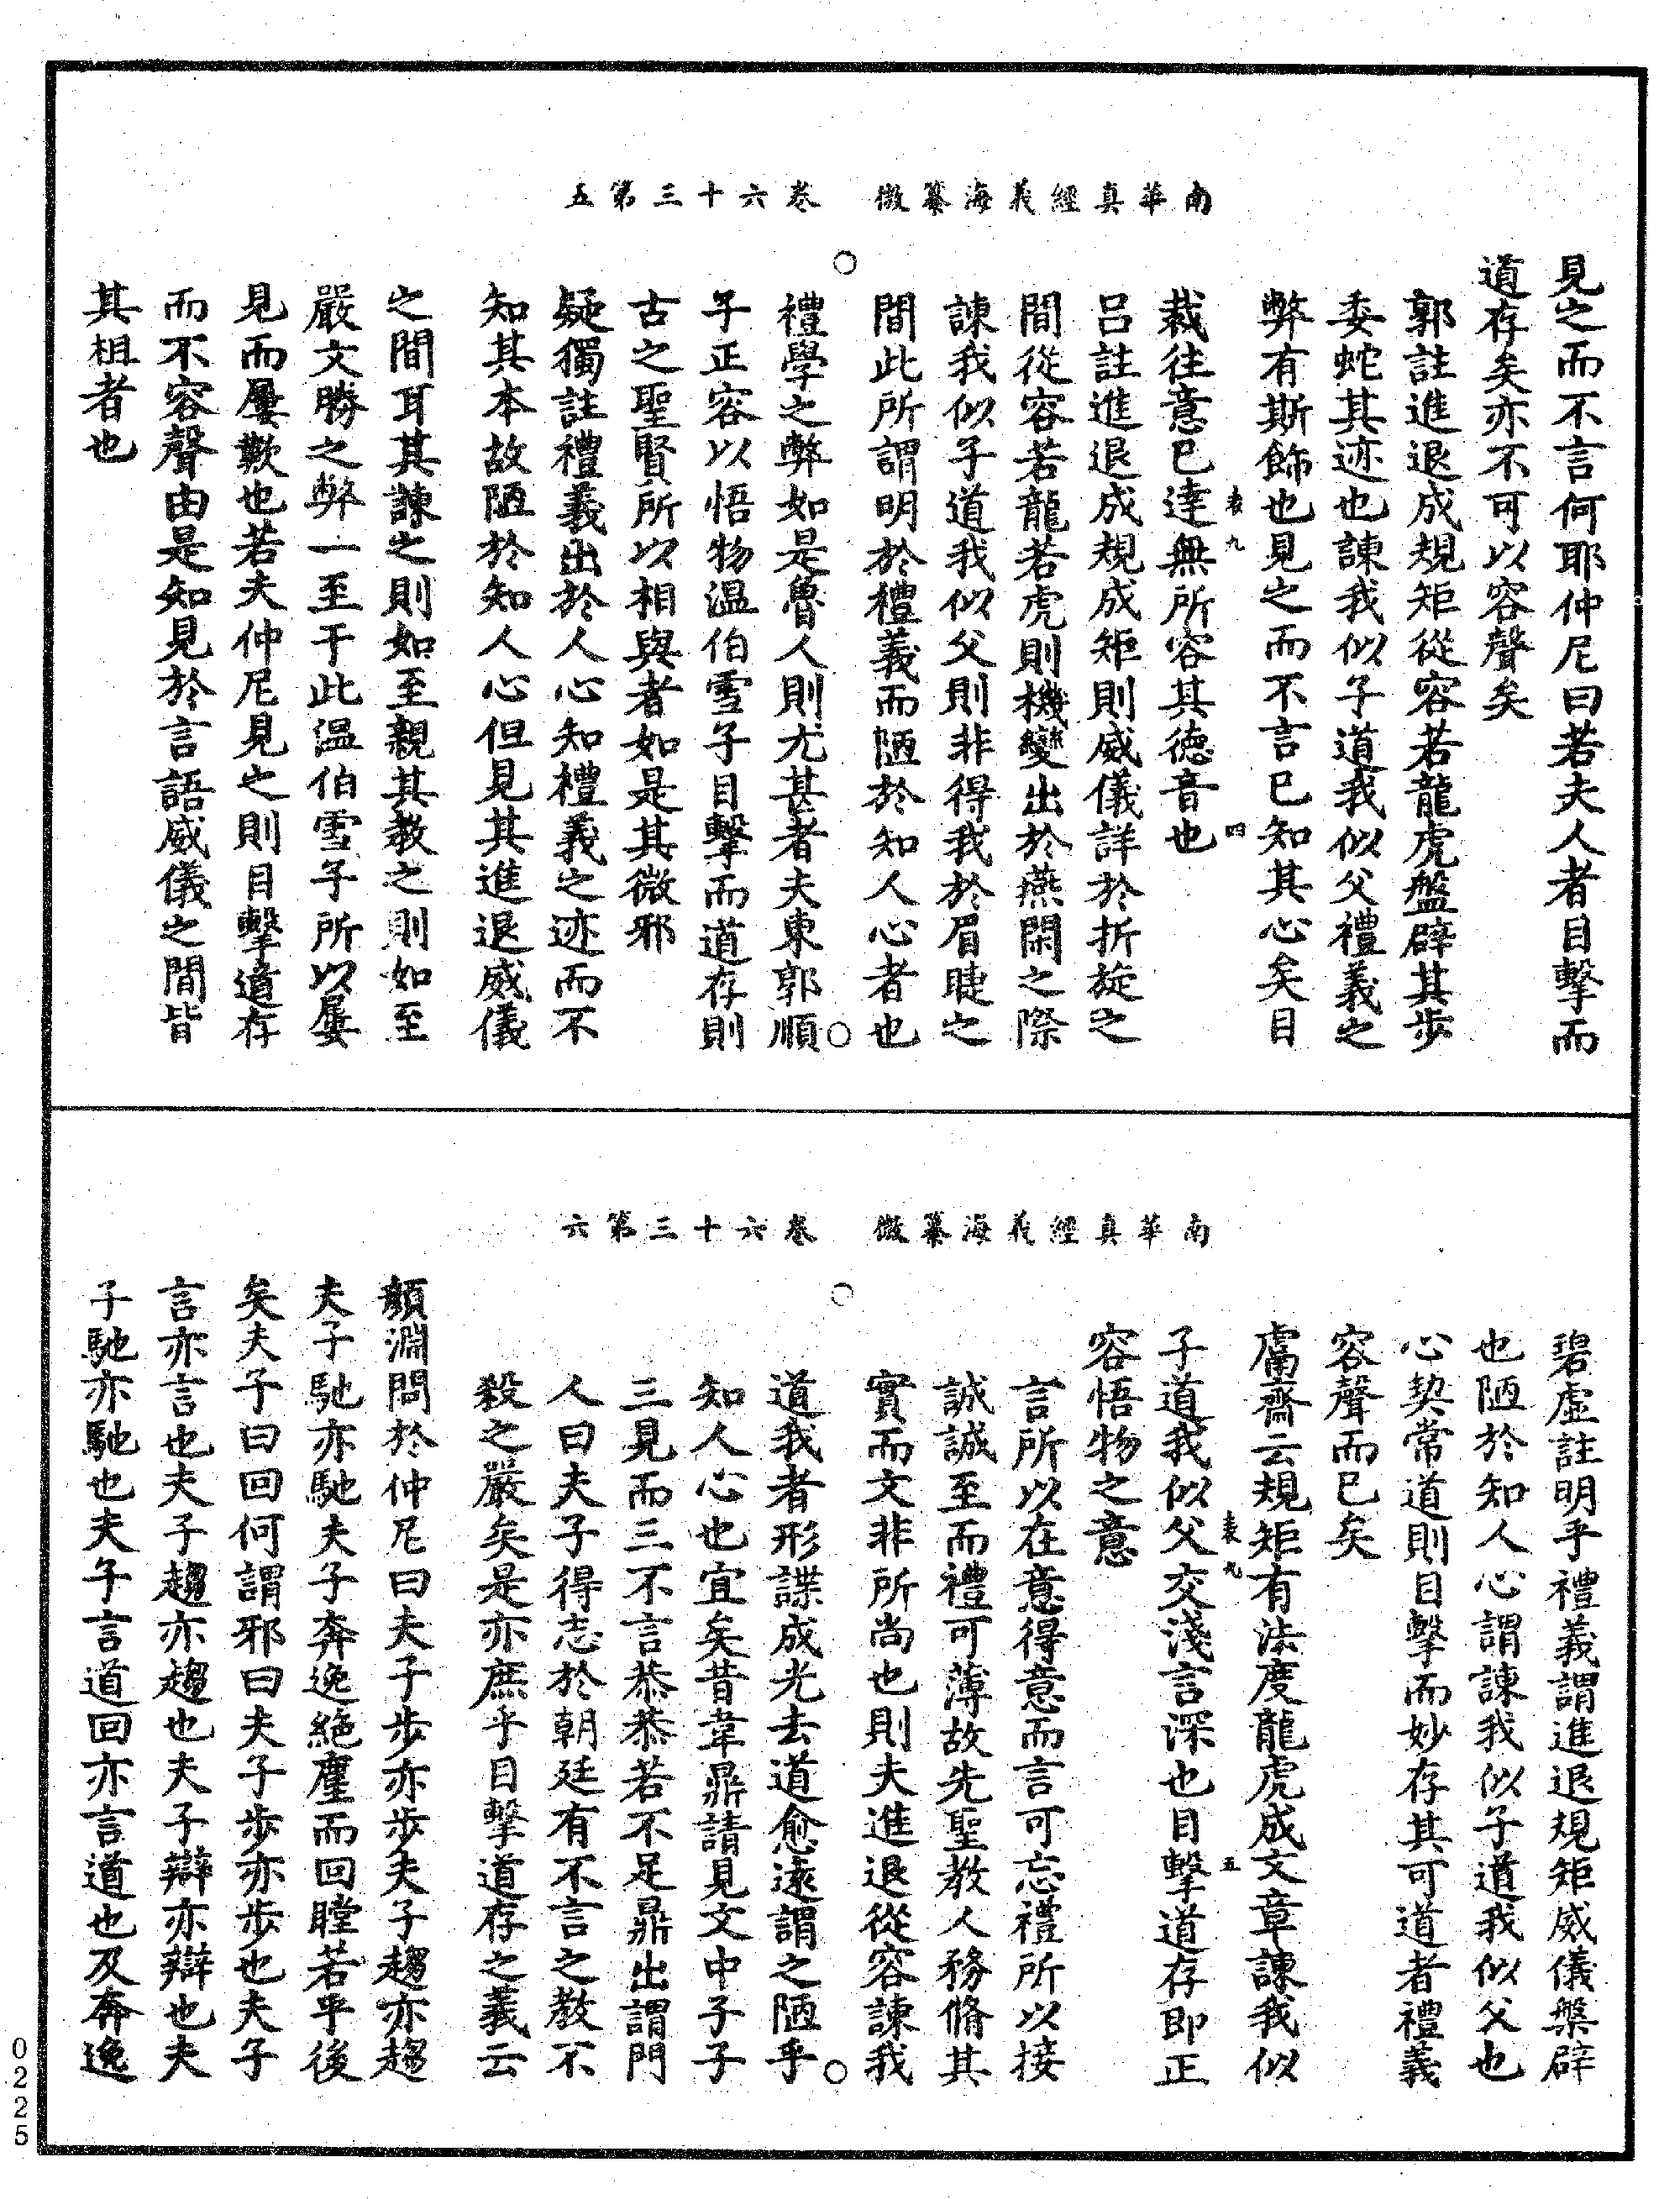 南華真經義海纂微　卷六十三第五
見之而不言何耶仲尼曰若夫人者目擊而
道存矣亦不可以容聲矣
郭註進退成規矩從容若龍虎盤辟其步
委蛇其迹也諫我似子道我似父禮義之
弊有斯飾也見之而不言已知其心矣目
表九　四
裁往意已達無所容其德音也
呂註進退成規成矩則威儀詳於折旋之
間從容若龍若虎則機變出於燕閑之際
諫我似子道我似父則非得我於眉睫之
間此所謂明於禮義而陋於知人心者也
禮學之弊如是魯人則尤甚者夫東郭順
子正容以悟物温伯雪子目擊而道存則
古之聖賢所以相與者如是其微邪
疑獨註禮義出於人心知禮義之迹而不
知其本故陋於知人心但見其進退威儀
之間耳其諫之則如至親其教之則如至
嚴文勝之弊一至于此温伯雪子所以屢
見而屢歎也若夫仲尼見之則目擊道存
而不容聲由是知見於言語威儀之間皆
其柤者也
南華真經義海纂微　卷六十三第六
碧虛註明乎禮義謂進退規矩威儀槃辟
也陋於知人心謂諫我似子道我似父也
心契常道則目擊而妙存其可道者禮義
容聲而已矣
鬳齋云規矩有法度龍虎成文章諫我似
表九　五
子道我似父交淺言深也目擊道存即正
容悟物之意
言所以在意得意而言可忘禮所以接
誠誠至而禮可薄故先聖教人務脩其
實而文非所尚也則夫進退從容諫我
道我者形諜成光去道愈遠謂之陋乎
知人心也宜矣昔韋鼎請見文中子子
三見而三不言恭恭若不足鼎出謂門
人曰夫子得志於朝廷有不言之教不
殺之嚴矣是亦庶乎目擊道存之義云
顏淵問於仲尼曰夫子步亦步夫子趨亦趨
夫子馳亦馳夫子奔逸絕塵而回瞠若乎後
矣夫子曰回何謂邪曰夫子步亦步也夫子
言亦言也夫子趨亦趨也夫子辯亦辯也夫
子馳亦馳也夫子言道回亦言道也及奔逸
0225